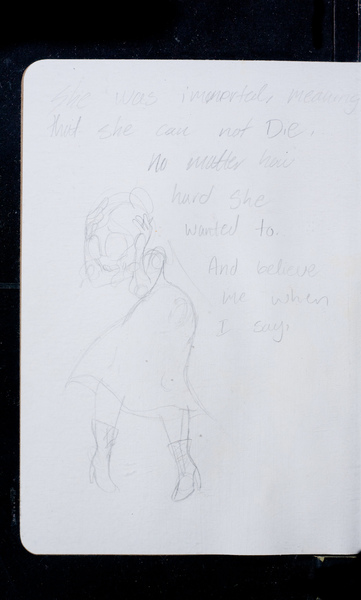 She was immortal, meaning
that she can not Die.
no matter how
hard she
wanted to.
And believe
me when
I say,